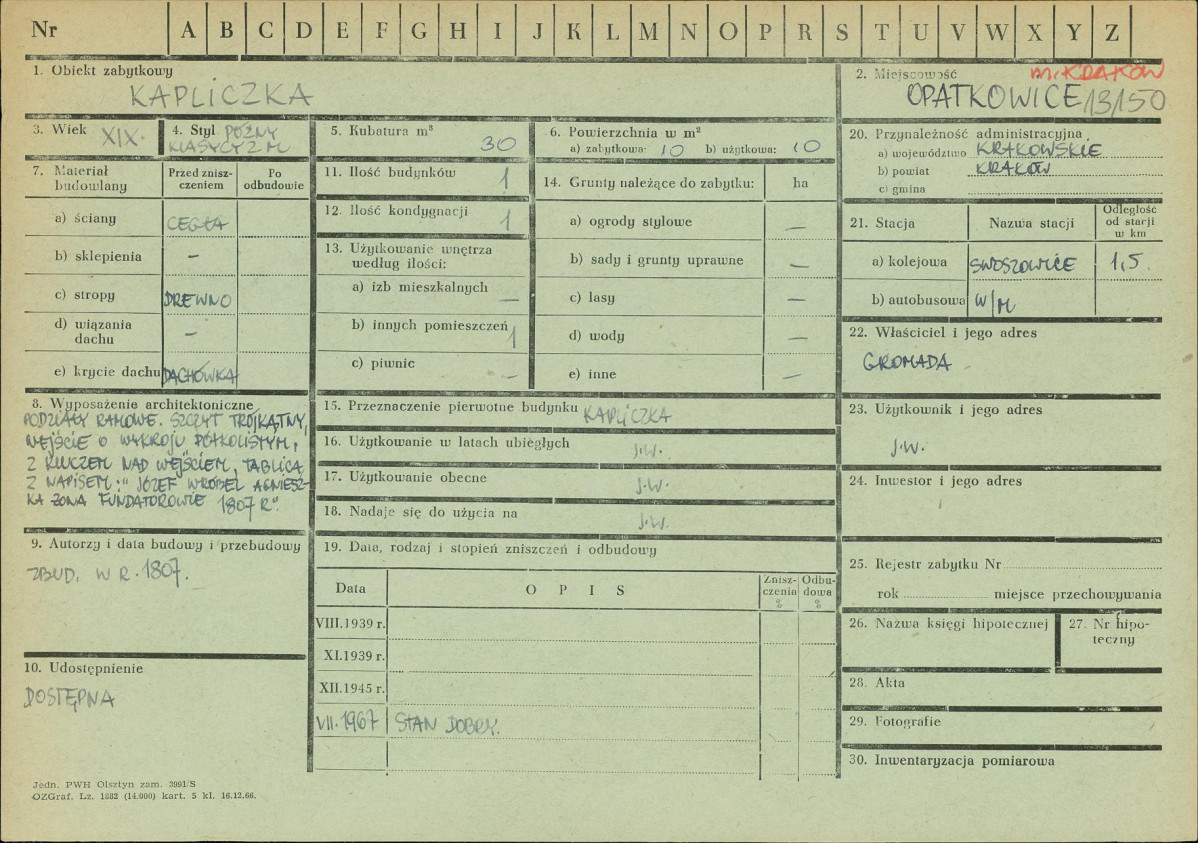 Nr A B C D E F G H I J K L M N O P R S T U V W X Y Z
1. Obiekt zabytkowy
KAPLICZKA
2. Miejscowość m. KRAKÓW
OPATKOWICE 13/50
3. Wiek XIX.
4. Styl PÓŹNY
KLASYCYZM
5. Kubatura m³ 30
6. Powierzchnia w m²
a) zabytkowa: 10 b) użytkowa: 10
7. Materiał budowlany
Przed zniszczeniem
Po odbudowie
a) ściany CEGŁA
b) sklepienia —
c) stropy DREWNO
d) wiązania dachu —
e) krycie dachu DACHÓWKA
8. Wyposażenie architektoniczne
PODZIAŁY RAMOWE. SZCZYT TRÓJKĄTNY,
WEJŚCIE O WYKROJU PÓŁKOLISTYM,
Z KLUCZEM NAD WEJŚCIEM, TABLICA
Z NAPISEM: "JÓZEF WRÓBEL AGNIESZ-
KA ŻONA FUNDATOROWIE 1807 R".
9. Autorzy i data budowy i przebudowy
ZBUD. W R. 1807.
10. Udostępnienie
DOSTĘPNA
11. Ilość budynków 1
12. Ilość kondygnacji 1
13. Użytkowanie wnętrza
według ilości:
a) izb mieszkalnych —
b) innych pomieszczeń 1
c) piwnic —
14. Grunty należące do zabytku: ha
a) ogrody stylowe —
b) sady i grunty uprawne —
c) lasy —
d) wody —
e) inne —
15. Przeznaczenie pierwotne budynku KAPLICZKA
16. Użytkowanie w latach ubiegłych J.W.
17. Użytkowanie obecne J.W.
18. Nadaje się do użycia na J.W.
19. Data, rodzaj i stopień zniszczeń i odbudowy
Data O P I S Zniszczenia % Odbudowa %
VIII.1939 r.
XI.1939 r.
XII.1945 r.
VII.1967 STAN DOBRY.
20. Przynależność administracyjna
a) województwo KRAKOWSKIE
b) powiat KRAKÓW
c) gmina
21. Stacja Nazwa stacji Odległość od stacji w km
a) kolejowa SWOSZOWICE 1,5.
b) autobusowa W/M
22. Właściciel i jego adres
GROMADA
23. Użytkownik i jego adres
J.W.
24. Inwestor i jego adres
25. Rejestr zabytku Nr
rok miejsce przechowywania
26. Nazwa księgi hipotecznej
27. Nr hipoteczny
28. Akta
29. Fotografie
30. Inwentaryzacja pomiarowa
Jedn. PWH Olsztyn zam. 3991/S
OZGraf. Lz. 1882 (14.000) kart. 5 kl. 16.12.66.